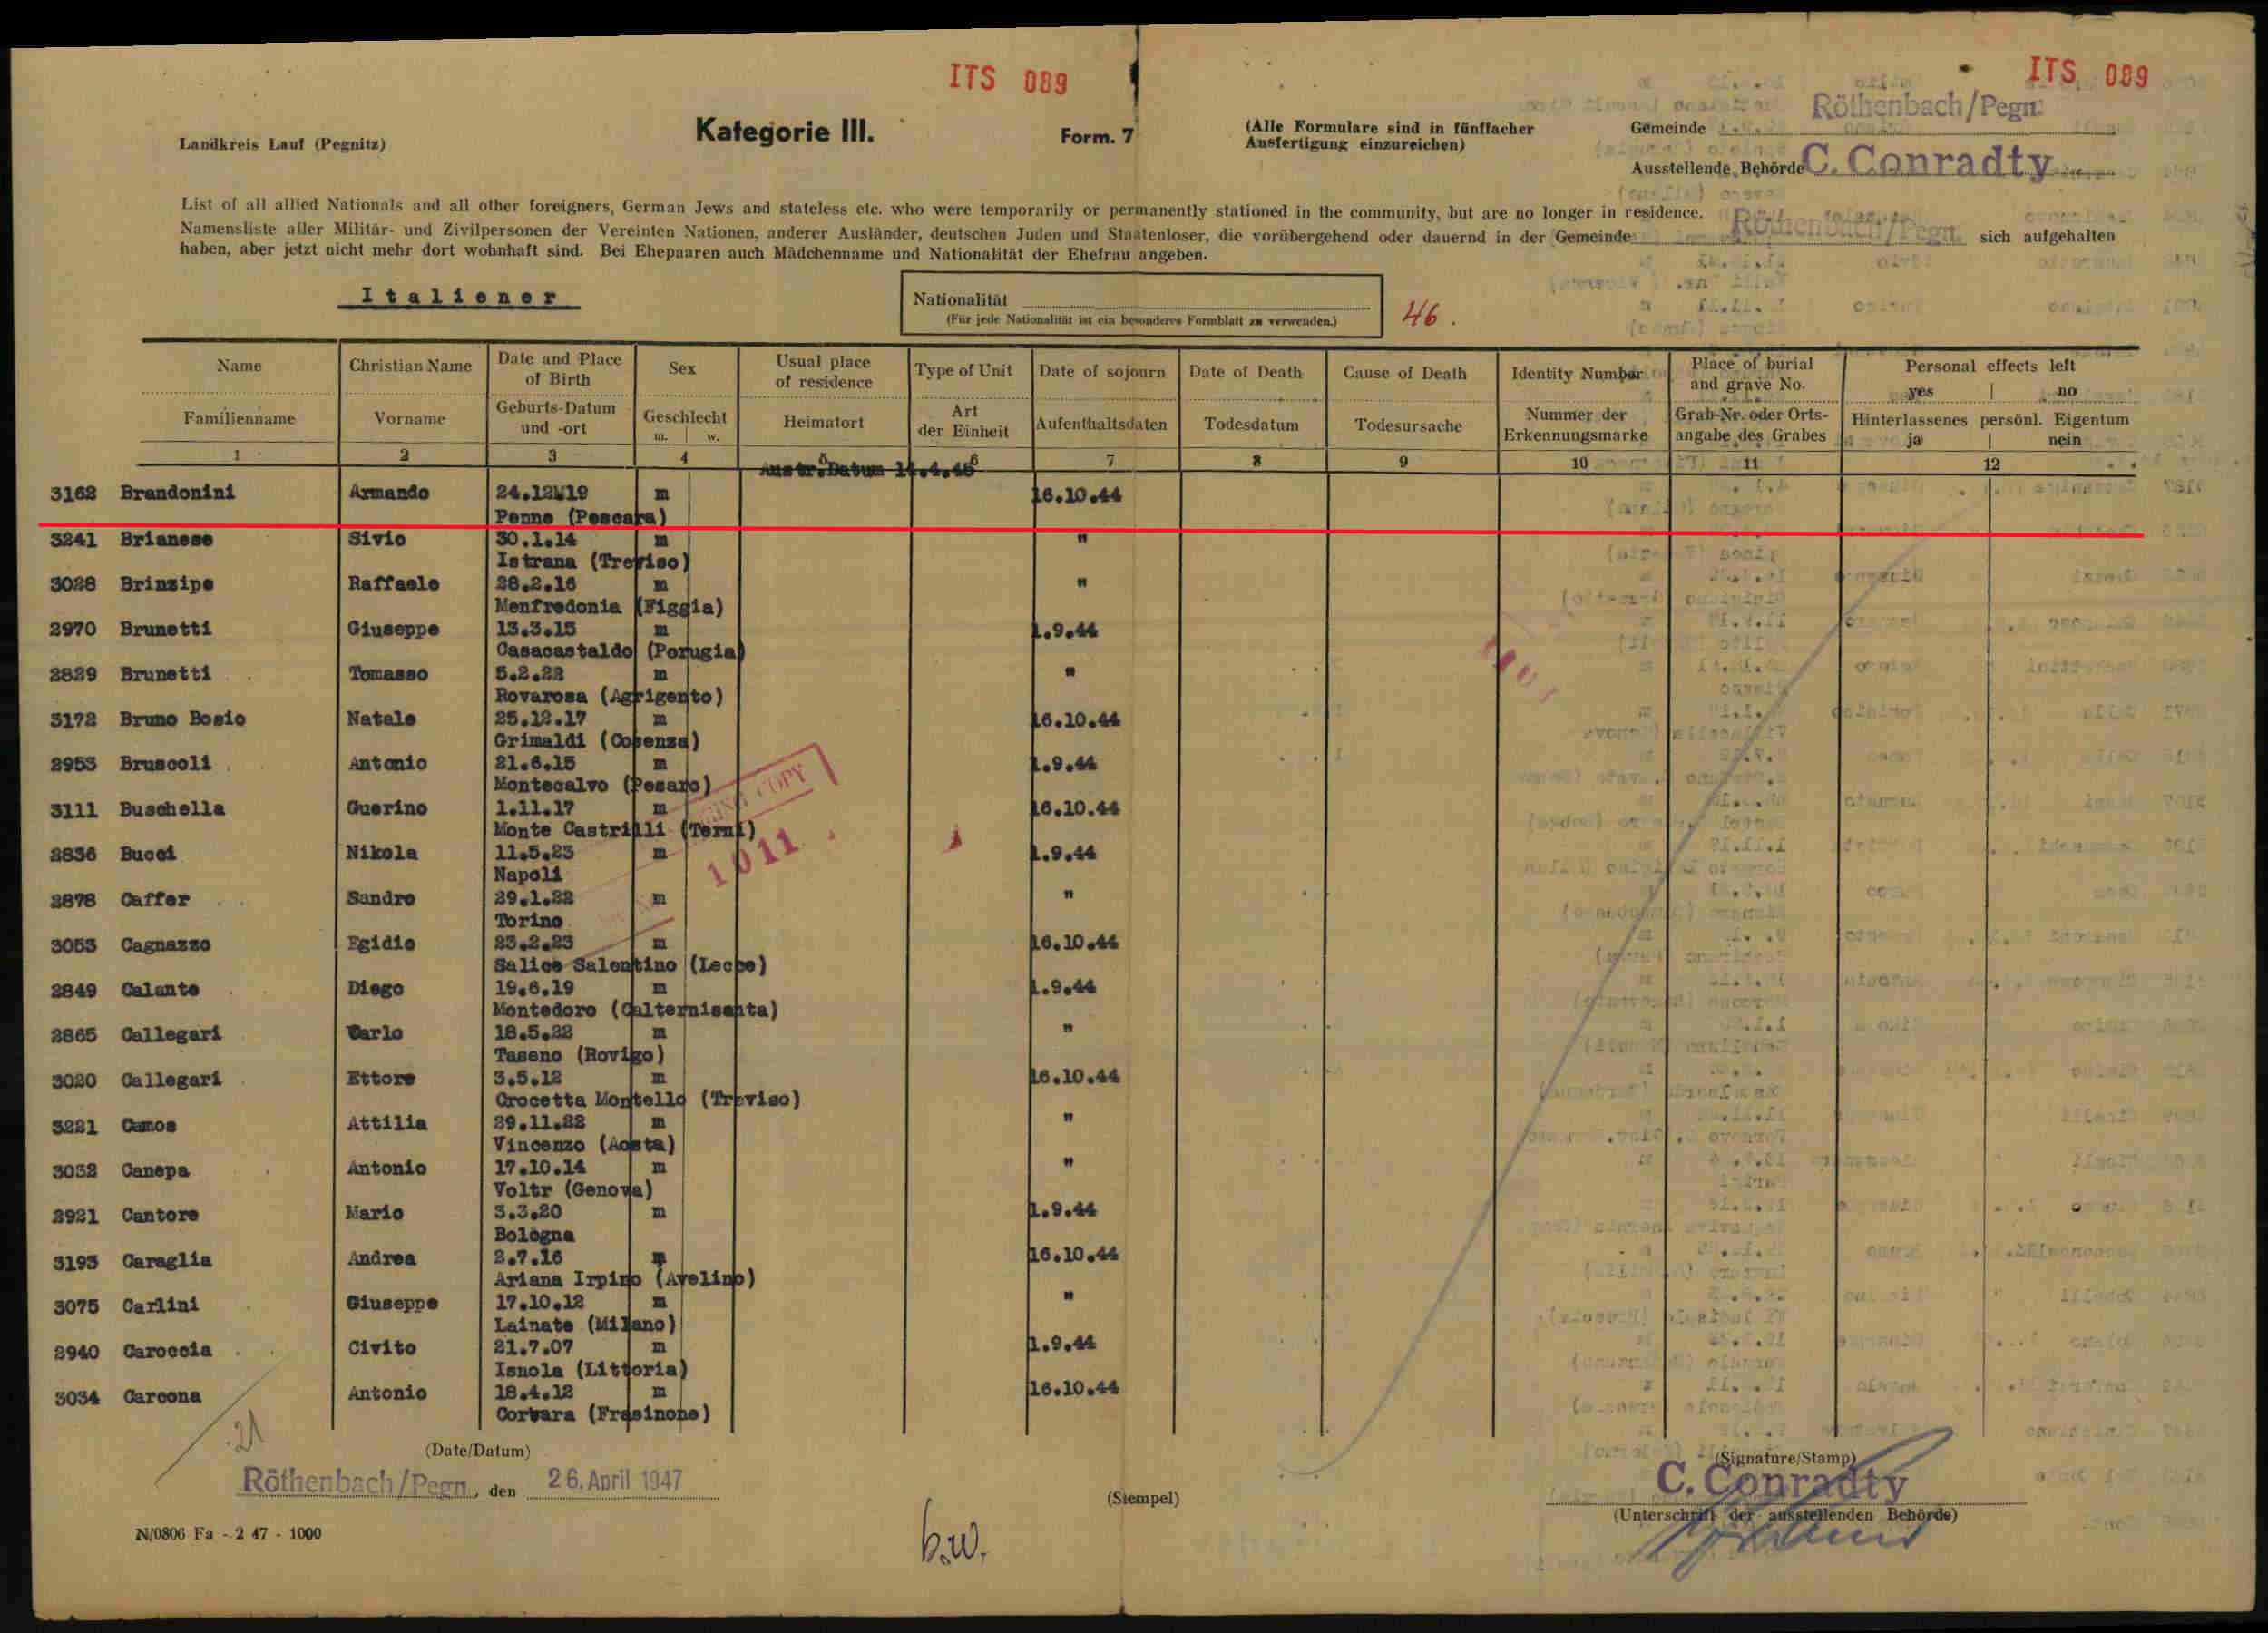 ITS 089
ITS 089
Landkreis Lauf (Pegnitz)
Kategorie III.
Form. 7
(Alle Formulare sind in fünffacher
Ausfertigung einzureichen)
Gemeinde Röthenbach/Pegn.
Ausstellende Behörde C. Conradty
List of all allied Nationals and all other foreigners, German Jews and stateless etc. who were temporarily or permanently stationed in the community, but are no longer in residence.
Namensliste aller Militär- und Zivilpersonen der Vereinten Nationen, anderer Ausländer, deutschen Juden und Staatenloser, die vorübergehend oder dauernd in der Gemeinde Röthenbach/Pegn. sich aufgehalten
haben, aber jetzt nicht mehr dort wohnhaft sind. Bei Ehepaaren auch Mädchenname und Nationalität der Ehefrau angeben.
Italiener
Nationalität
(Für jede Nationalität ist ein besonderes Formblatt zu verwenden.)
46.
Name Christian Name Date and Place of Birth Sex Usual place of residence Type of Unit Date of sojourn Date of Death Cause of Death Identity Number Place of burial and grave No. Personal effects left yes no
Familienname Vorname Geburts-Datum und -ort Geschlecht m. w. Heimatort Art der Einheit Aufenthaltsdaten Todesdatum Todesursache Nummer der Erkennungsmarke Grab-Nr. oder Orts-angabe des Grabes Hinterlassenes persönl. Eigentum ja nein
1 2 3 4 5 6 7 8 9 10 11 12
Austr.Datum 14.4.45
3162 Brandonini Armando 24.12.19 m 16.10.44
Penne (Pescara)
3241 Brianese Sivio 30.1.14 m "
Istrana (Treviso)
3028 Brinzipe Raffaele 28.2.16 m "
Menfredonia (Figgia)
2970 Brunetti Giuseppe 13.3.15 m 1.9.44
Casacastaldo (Porugia)
2829 Brunetti Tomasso 5.2.22 m "
Rovarosa (Agrigento)
3172 Bruno Bosio Natale 25.12.17 m 16.10.44
Grimaldi (Cosenza)
2953 Bruscoli Antonio 21.6.15 m 1.9.44
Montecalvo (Pesaro)
3111 Buschella Guerino 1.11.17 m 16.10.44
Monte Castrilli (Terni)
2836 Bucci Nikola 11.5.23 m 1.9.44
Napoli
2878 Caffer Sandro 29.1.22 m "
Torino
3053 Cagnazzo Egidio 23.2.23 m 16.10.44
Salice Salentino (Lecce)
2849 Calante Diego 19.6.19 m 1.9.44
Montedoro (Calternisenta)
2865 Callegari Carlo 18.5.22 m "
Taseno (Rovigo)
3020 Callegari Ettore 3.5.12 m 16.10.44
Crocetta Montello (Treviso)
3221 Camos Attilia 29.11.22 m "
Vincenzo (Aosta)
3032 Canepa Antonio 17.10.14 m "
Voltr (Genova)
2921 Cantore Mario 3.3.20 m 1.9.44
Bologna
3193 Caraglia Andrea 2.7.16 m 16.10.44
Ariana Irpino (Avelino)
3075 Carlini Giuseppe 17.10.12 m "
Lainate (Milano)
2940 Caroccia Civito 21.7.07 m 1.9.44
Isnola (Littoria)
3034 Carcona Antonio 18.4.12 m 16.10.44
Corvara (Frasinone)
COPY
1011
21
(Date/Datum)
Röthenbach/Pegn., den 26. April 1947
(Stempel)
(Signature/Stamp)
C. Conradty
(Unterschrift der ausstellenden Behörde)
N/0806 Fa - 2 47 - 1000
b.w.